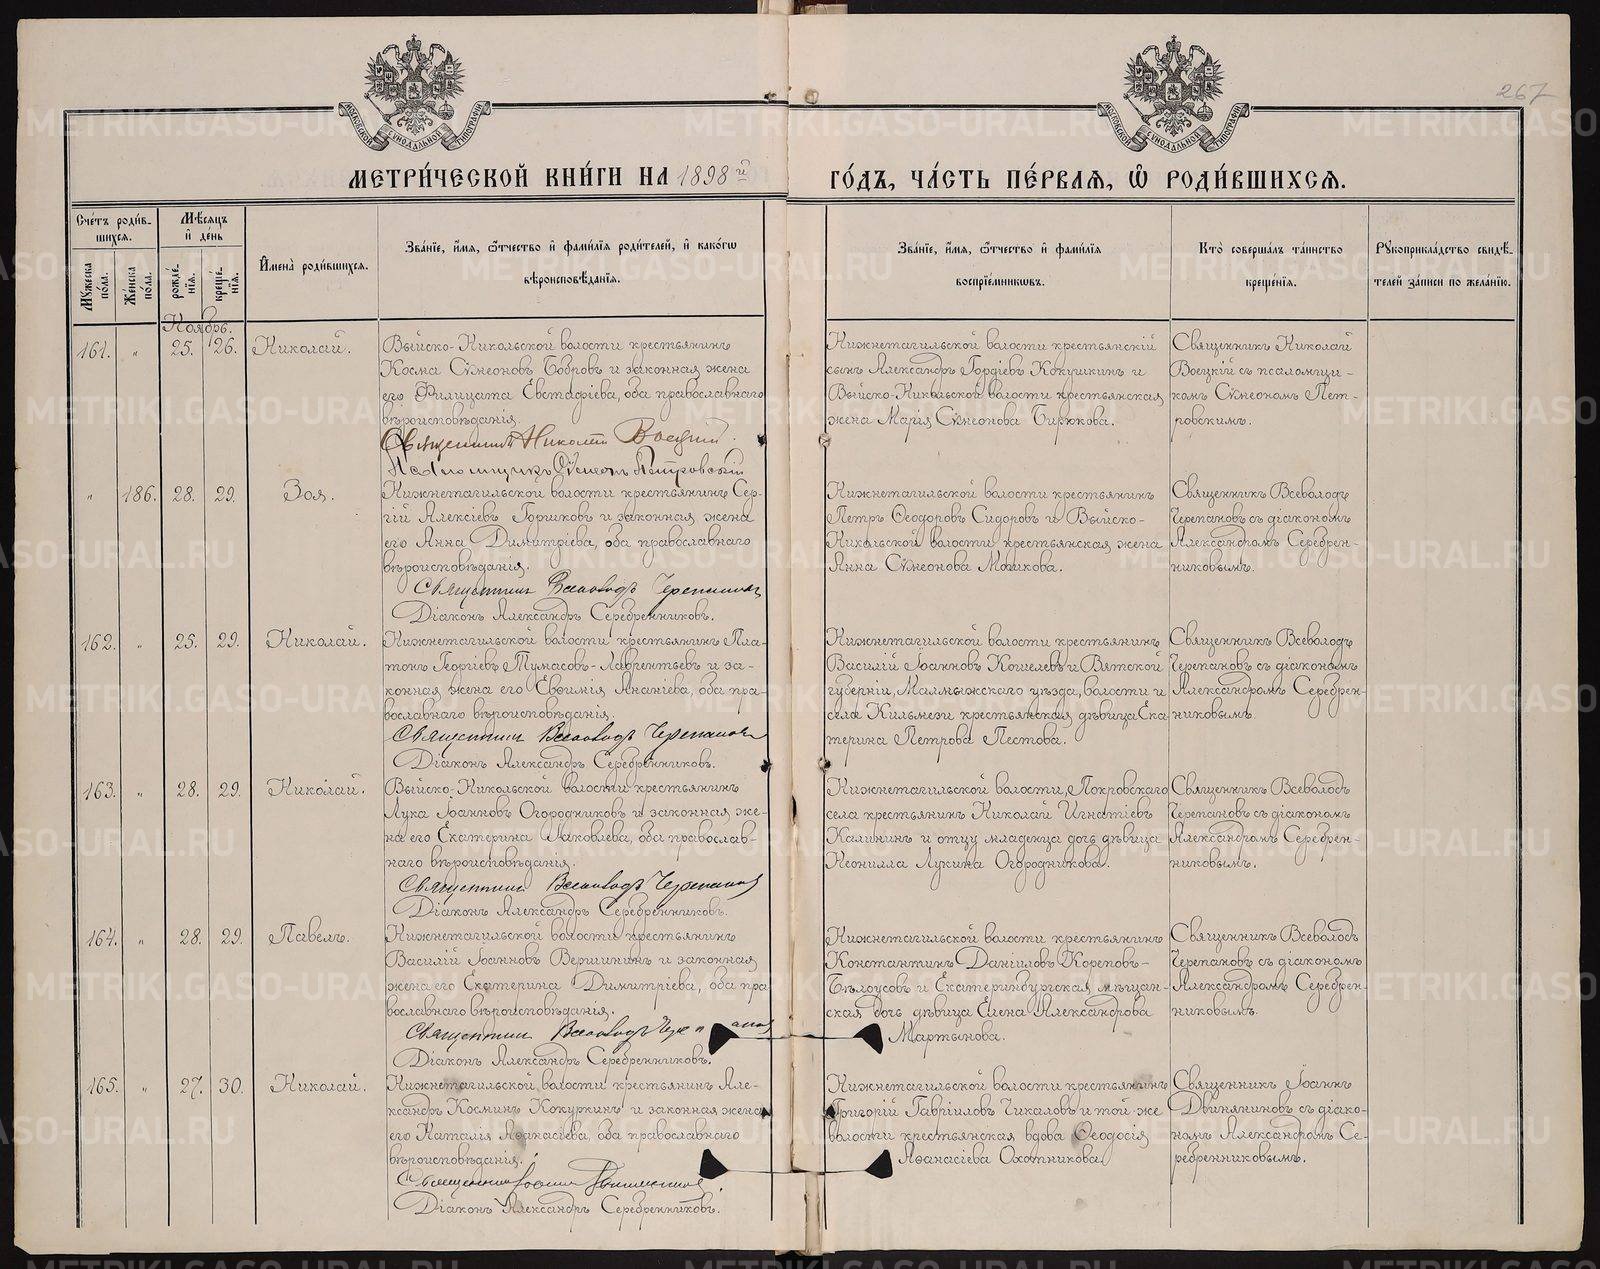 267
МОСКОВСКОЙ СѴНОДАЛЬНОЙ ТИПОГРАФІИ
МОСКОВСКОЙ СѴНОДАЛЬНОЙ ТИПОГРАФІИ
МЕТРИ́ЧЕСКОЙ КНИ́ГИ НА 1898й ГО́ДЪ, ЧА́СТЬ ПЕ́РВАЯ, Ѿ РОДИ́ВШИХСЯ.
Сче́тъ роди́вшихся.
Мꙋ́жеска по́ла.
Же́нска по́ла.
Мѣ́сяцъ и́ де́нь
рожде́нїя.
креще́нїя.
И҆мена̀ роди́вшихся.
Зва́нїе, и҆́мя, ѻ҆́тчество и҆ фами́лїя роди́телей, и҆ како́гѡ вѣроисповѣ́данїя.
Зва́нїе, и҆́мя, ѻ҆́тчество и҆ фами́лїя воспрїе́мникѡвъ.
Кто̀ соверша́лъ та́инство креще́нїя.
Рꙋкоприкла́дство свидѣ́телей за́писи по жела́нїю.
Ноябрь.
161. „ 25. 26. Николай.
Выйско-Никольской волости крестьянинъ
Косма Сѵмеоновъ Бобровъ и законная жена
его Филицата Евстафіева, оба православнаго
вѣроисповѣданія.
Священникъ Николай Воецкій.
Псаломщикъ Сѵмеонъ Петровскій
Нижнетагильской волости крестьянскій
сынъ Александръ Гордіевъ Кокушкинъ и
Выйско-Никольской волости крестьянская
жена Марія Сѵмеонова Бирюкова.
Священникъ Николай
Воецкій съ псаломщи-
комъ Сѵмеономъ Пет-
ровскимъ.
„ 186. 28. 29. Зоя.
Нижнетагильской волости крестьянинъ Сер-
гій Алексіевъ Горшковъ и законная жена
его Анна Димитріева, оба православнаго
вѣроисповѣданія.
Священникъ Всеволодъ Черепановъ
Діаконъ Александръ Серебренниковъ.
Нижнетагильской волости крестьянинъ
Петръ Ѳеодоровъ Сидоровъ и Выйско-
Никольской волости крестьянская жена
Анна Сѵмеонова Мошкова.
Священникъ Всеволодъ
Черепановъ съ діакономъ
Александромъ Серебрен-
никовымъ.
162. „ 25. 29. Николай.
Нижнетагильской волости крестьянинъ Пла-
тонъ Георгіевъ Тумасовъ-Лаврентьевъ и за-
конная жена его Евѳимія Ананіева, оба пра-
вославнаго вѣроисповѣданія.
Священникъ Всеволодъ Черепановъ
Діаконъ Александръ Серебренниковъ.
Нижнетагильской волости крестьянинъ
Василій Іоанновъ Кошелевъ и Вятской
губерніи, Малмыжскаго уѣзда, волости и
села Кильмези крестьянская дѣвица Ека-
терина Петрова Пестова.
Священникъ Всеволодъ
Черепановъ съ діакономъ
Александромъ Серебрен-
никовымъ.
163. „ 28. 29. Николай.
Выйско-Никольской волости крестьянинъ
Лука Іоанновъ Огородниковъ и законная же-
на его Екатерина Іаковлева, оба православ-
наго вѣроисповѣданія.
Священникъ Всеволодъ Черепановъ
Діаконъ Александръ Серебренниковъ.
Нижнетагильской волости, Покровскаго
села крестьянинъ Николай Игнатіевъ
Калининъ и отцу младенца дочь дѣвица
Неонилла Лукина Огородникова.
Священникъ Всеволодъ
Черепановъ съ діакономъ
Александромъ Серебрен-
никовымъ.
164. „ 28. 29. Павелъ.
Нижнетагильской волости крестьянинъ
Василій Іоанновъ Вершининъ и законная
жена его Екатерина Димитріева, оба пра
вославнаго вѣроисповѣданія.
Священникъ Всеволодъ Черепановъ
Діаконъ Александръ Серебренниковъ.
Нижнетагильской волости крестьянинъ
Константинъ Даніиловъ Кореповъ-
Бѣлоусовъ и Екатеринбургская мѣщан-
ская дочь дѣвица Елена Александрова
Мартынова.
Священникъ Всеволодъ
Черепановъ съ діакономъ
Александромъ Серебрен-
никовымъ.
165. „ 27. 30. Николай.
Нижнетагильской волости крестьянинъ Але-
ксандръ Косминъ Кокуркинъ и законная жена
его Наталія Аѳанасіева, оба православнаго
вѣроисповѣданія.
Священникъ Іоаннъ Двиняниновъ.
Діаконъ Александръ Серебренниковъ.
Нижнетагильской волости крестьянинъ
Григорій Гавріиловъ Чикаловъ и той же
волости крестьянская вдова Ѳеодосія
Аѳанасіева Охотникова.
Священникъ Іоаннъ
Двиняниновъ съ діако-
номъ Александромъ Се-
ребренниковымъ.
METRIKI.GASO-URAL.RU